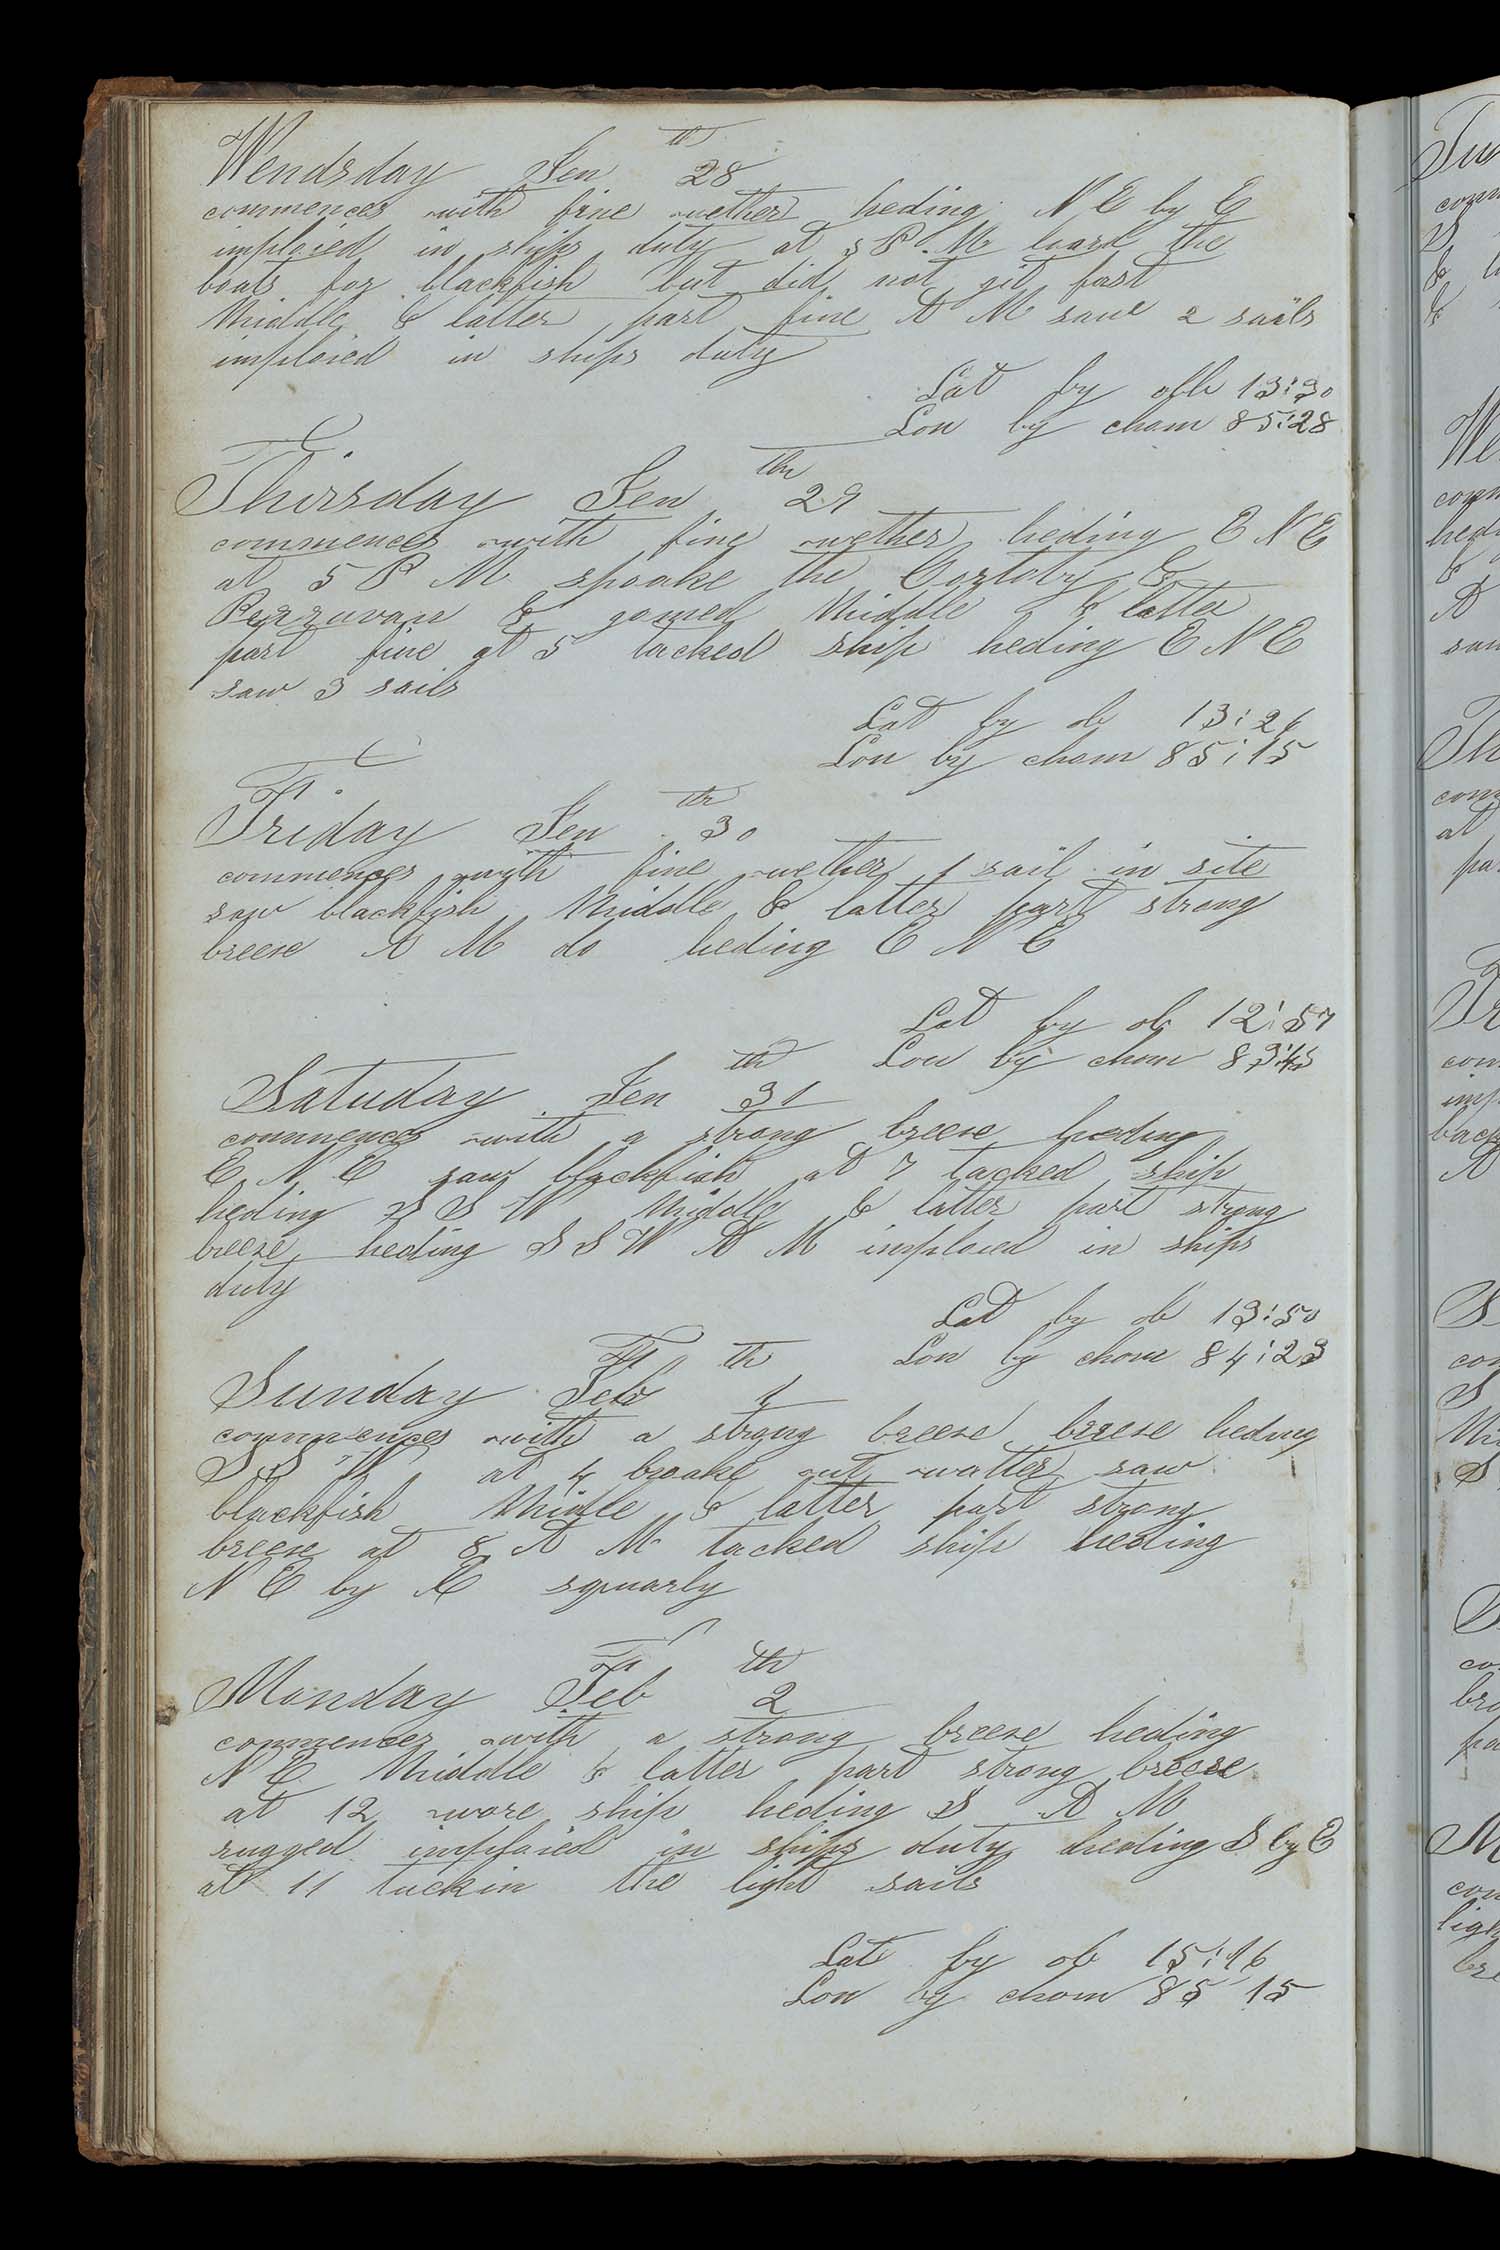 Wendsday Jen 28th
commences with fine wether heding N E by E
imploied in ships duty at 3 P. M loard the
boats for blackfish but did not git fast
Middle & latter part fine A M saw 2 sails
imploied in ships duty
Lat by obb 13:30
Lon by chom 85:28
Thirsday Jen 29th
commences with fine wether heding E N E
at 5 P M spoake the &
& gomed Middle & latter
part fine at 5 tacked ship heding E N E
saw 3 sails
Lat by ob 13:26
Lon by chom 85:15
Friday Jen 30th
commences with fine wether 1 sail in site
saw blackfish Middle & latter part strong
breese A M do heding E N E
Lat by ob 12:57
Lon by chom 83:45
Satuday Jen 31th
commences with a strong breese heding
E N E saw blackfish at 7 tacked ship
heding S S W Middle & latter part strong
breese heding S S W A M imploied in ships
duty
Lat by ob 13:50
Lon by chom 84:23
Sunday Feb 1th
commences with a strong breese breese heding
S S W at 4 broake out watter saw
blackfish Middle & latter part strong
breese at 8 A M tacked ship heding
N E by E squarly
Monday Feb 2th
commences with a strong breese heding
N E Middle & latter part strong breese
at 12 wore ship heding S A M
rugged imploied in ships duty heding S by E
at 11 tuckin the light sails
Lat by ob 15:16
Lon by chom 85 15